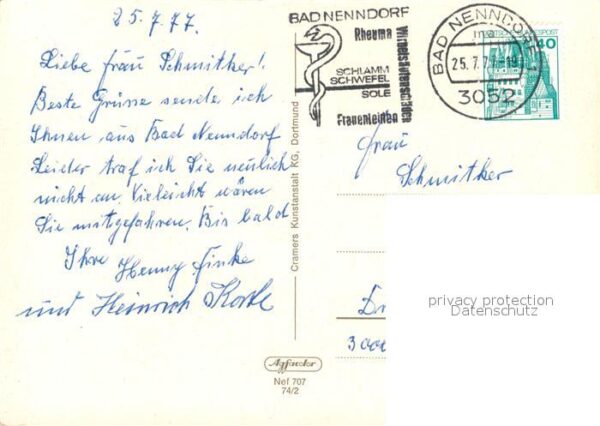 25.7.77.
Liebe Frau Schmitker!
Beste Grüsse sende ich
Ihnen aus Bad Nenndorf
Leider traf ich Sie neulich
nicht an. Vieleicht wären
Sie mitgefahren. Bis bald
Ihre Henny Finke
und Heinrich Korte
Cramers Kunstanstalt KG, Dortmund
Agfacolor
Nef 707
74/2
BAD NENNDORF
Rheuma
Wirbelsäulenschäden
SCHLAMM
SCHWEFEL
SOLE
Frauenleiden
BAD NENNDORF 1
25.7.77-19
3052
DEUTSCHE BUNDESPOST
40
Frau
Schmitker
3000
privacy protection
Datenschutz